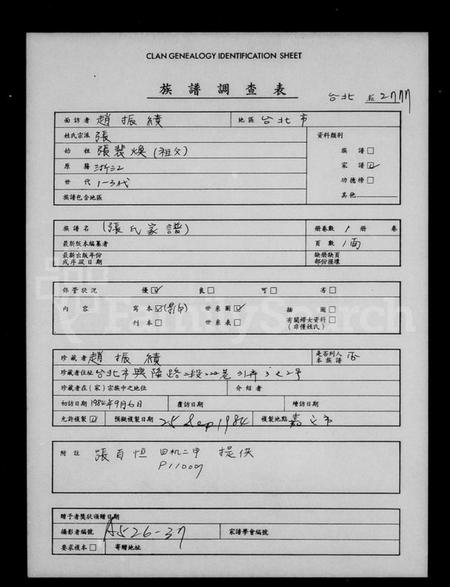 CLAN GENEALOGY IDENTIFICATION SHEET
族譜調查表
台北
面訪者 趙振績 地區 台北市
姓氏宗派 張 資料類別
始祖 張裴煥(祖父) 族譜
原籍 浙江 家譜
世代 1-3代 功德榜
族譜包含地區 其他
族譜名 (張氏家譜) 冊卷數 1 冊 卷
最新版本編纂者 頁數 1面
最新出版年份或序跋日期 缺冊缺頁部份損壞
保管狀況 優 良 可 劣
內容 寫本 世系圖 插圖
刊本 世系表 有關婦女資料(非僅姓氏)
珍藏者 趙振績 是否列入本族譜 否
珍藏者住址 台北市興隆路二段
珍藏者在(家)宗族中之地位 介紹者
初訪日期 1984年9月6日 覆訪日期 續訪日期
允許複製 預擬複製日期 25 Sep 1984 複製地點 嘉文市
附註 張百恒 提供
P11007
贈予者獎狀頒贈日期
攝影者編號 A526-37 家譜學會編號
要求複本 寄贈地址
FamilySearch